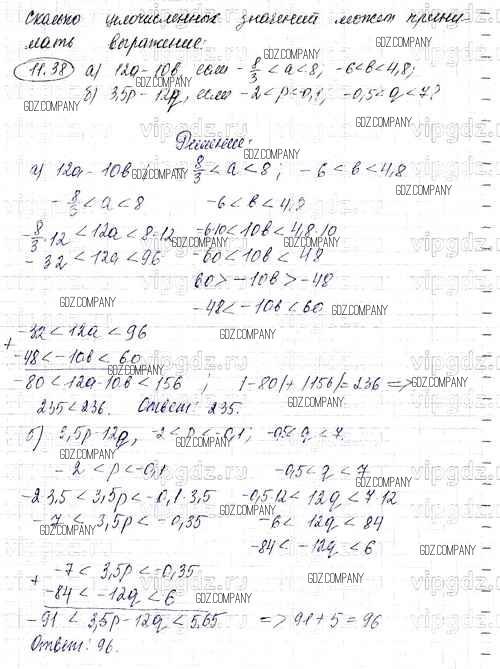 Сколько целочисленных значений может прини-
мать выражение:
11.38 а) 12a - 10в, если -8/3 < a < 8; -6 < в < 4,8;
б) 3,5p - 12q, если -2 < p < -0,1; -0,5 < q < 7?
Решение:
а) 12a - 10в; -8/3 < a < 8; -6 < в < 4,8
-8/3 < a < 8   -6 < в < 4,8
-8/3·12 < 12a < 8·12   -6·10 < 10в < 4,8·10
-32 < 12a < 96   -60 < 10в < 48
60 > -10в > -48
-48 < -10в < 60
-32 < 12a < 96
+
-48 < -10в < 60
-80 < 12a - 10в < 156; |-80| + |156| = 236 =>
235 < 236. Ответ: 235.
б) 3,5p - 12q, -2 < p < -0,1; -0,5 < q < 7.
-2 < p < -0,1   -0,5 < q < 7
-2·3,5 < 3,5p < -0,1·3,5   -0,5·12 < 12q < 7·12
-7 < 3,5p < -0,35   -6 < 12q < 84
-84 < -12q < 6
-7 < 3,5p < -0,35
+
-84 < -12q < 6
-91 < 3,5p - 12q < 5,65   => 91 + 5 = 96
Ответ: 96.
GDZ.COMPANY
vipgdz.ru